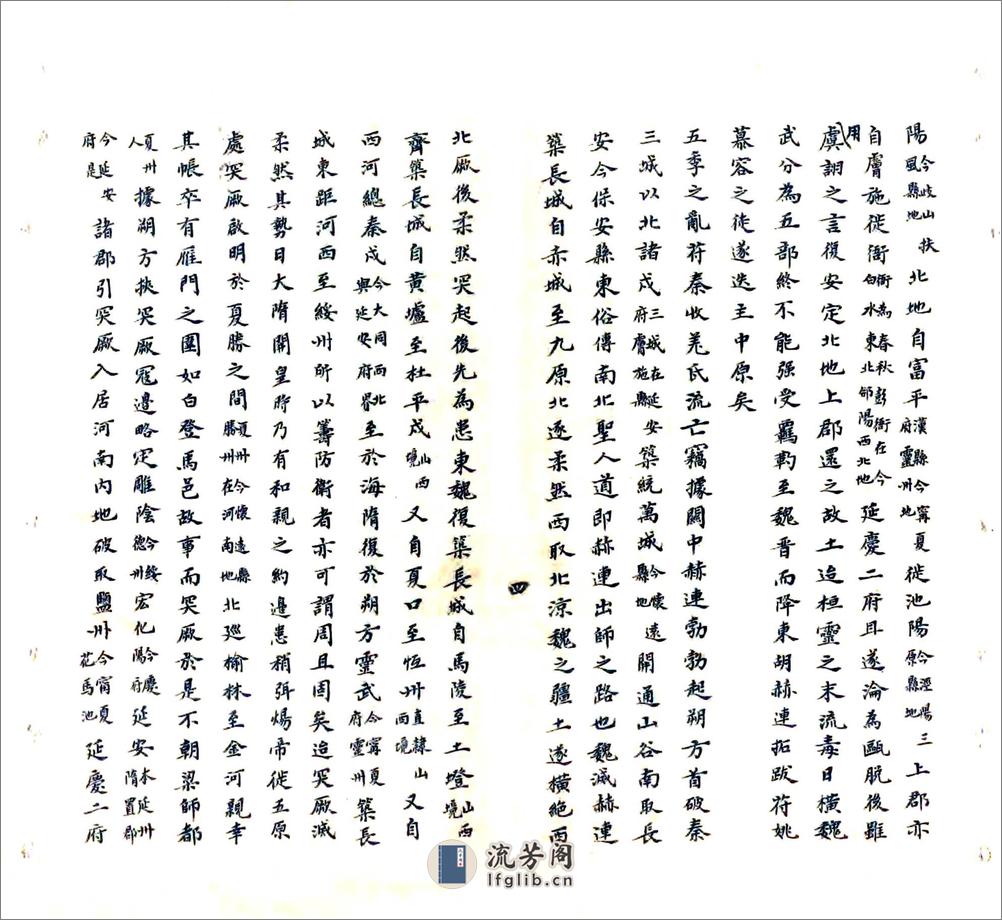 陽今岐山扶風縣地北地自富平漢縣今寧夏府靈州地徙池陽今涇陽三原縣地上郡亦
自膚施徙衙衙為春秋彭衙在今白水東北郃陽西北地延慶二府且遂淪為甌脫後雖
用虞詡之言復安定北地上郡還之故土迨桓靈之末流毒日橫魏
武分為五部終不能强受羈靮至魏晋而降東胡赫連拓跋苻姚
慕容之徒遂迭主中原矣
五季之亂苻秦收羌氐流亡竊據關中赫連勃勃起朔方首破秦
三城以北諸戍三城在延安府膚施縣築統萬城今懷遠縣地開通山谷南取長
安今保安縣東俗傳南北聖人道即赫連出師之路也魏滅赫連
築長城自赤城至九原北逐柔然西取北涼魏之疆土遂橫絕西
四
北厥後柔然突起後先為患東魏復築長城自馬陵至土墱山西境
齊築長城自黃壚至杜平戍山西境又自夏口至恆州直隸山西境又自
西河總秦戍今大同西北與延安府界至於海隋復於朔方靈武今寧夏府靈州築長
城東距河西至綏州所以籌防衛者亦可謂周且固矣迨突厥滅
柔然其勢日大隋開皇時乃有和親之約邊患稍弭煬帝徙五原
處突厥啟明於夏勝之間夏州今懷遠縣勝州在河南地北巡榆林至金河親幸
其帳卒有雁門之圍如白登馬邑故事而突厥於是不朝梁師都
夏州人據朔方挾突厥寇邊略定雕陰今綏德州宏化今慶陽府延安本延州隋置郡
今延安府是諸郡引突厥入居河南内地破取鹽州今寧夏花馬池延慶二府
流芳阁
lfglib.cn